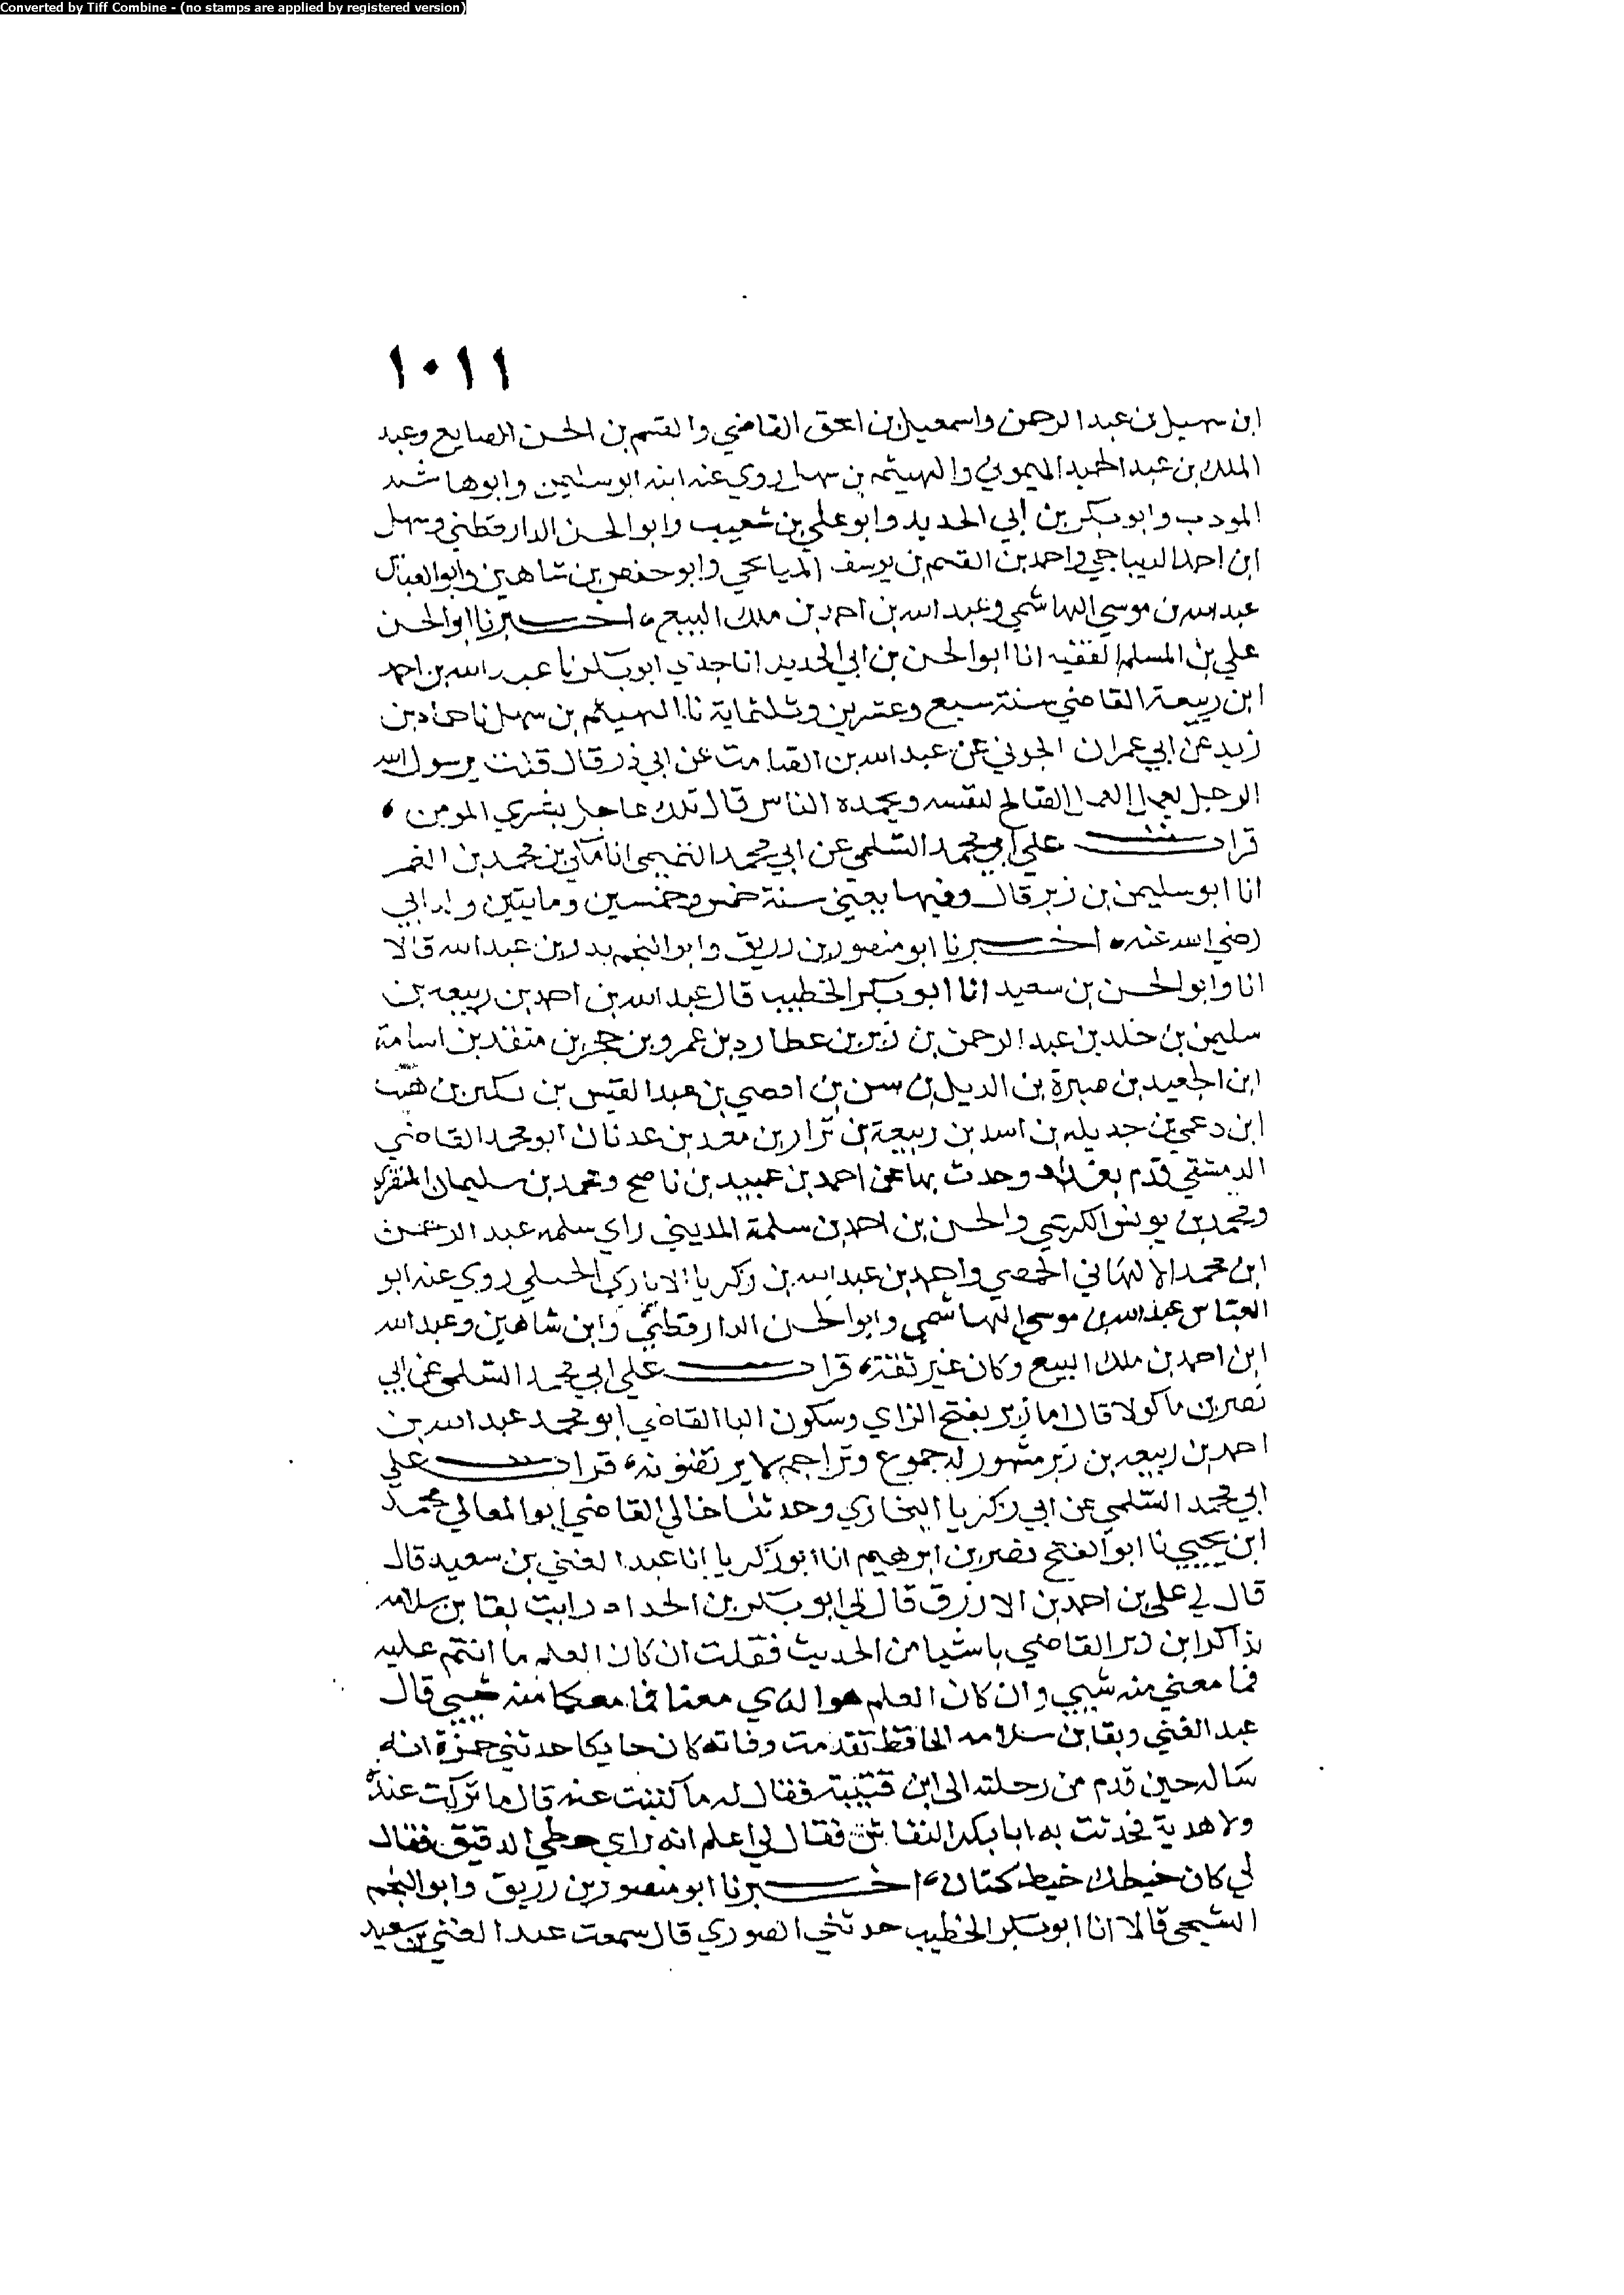 Converted by Tiff Combine - (no stamps are applied by registered version)
١٠١١
ابن سهيل بن عبد الرحمن واسمعيل بن اسحق القاضي والقسم بن الحسن الصايع وعبد
الملك بن عبد الحميد الميموني والهيثم بن سهل روي عنه ابنه ابو سليمن وابو هاشم
المودب وابو بكر بن ابي الحديد وابو علي بن شعيب وابو الحسن الدارقطني وسهل
ابن احمد الديباجي واحمد بن القسم بن يوسف الميانجي وابو حفص بن شاهين وابو العباس
عبد الله بن موسي الهاشمي وعبد الله بن احمد بن ملك البيع، اخبرنا ابو الحسن
علي بن المسلم الفقيه انا ابو الحسن بن ابي الحديد انا جدي ابو بكر نا عبد الله بن احمد
ابن ربيعة القاضي سنة سبع وعشرين وثلثماية نا الهيثم بن سهل نا حماد بن
زيد عن ابي عمران الجوني عن عبد الله بن الصامت عن ابي ذر قال قلت يرسول الله
الرجل يعمل العمل الصالح لنفسه ويحمده الناس قال تلك عاجل بشري المومن،
قرات علي ابي محمد السلمي عن ابي محمد التميمي انا مكي بن محمد بن الغمر
انا ابو سليمن بن زبر قال وفيها يعني سنة خمس وخمسين ومايتين ولد ابي
رضي الله عنه، اخبرنا ابو منصور بن زريق وابو النجم بدر بن عبد الله قالا
انا وابو الحسن بن سعيد انا ابو بكر الخطيب قال عبد الله بن احمد بن ربيعه بن
سليمن بن خلد بن عبد الرحمن بن زبر بن عطارد بن عمرو بن حجر بن منقذ بن اسامة
ابن الجعيد بن صبرة بن الديل بن سن بن افصي بن عبد القيس بن هنب
ابن دعمي بن جديله بن اسد بن ربيعة بن نزار بن معد بن عدنان ابو محمد القاضي
الدمشقي قدم بغداد وحدث بها عن احمد بن عبيد بن ناصح ومحمد بن سليمان المنقري
ومحمد بن يونس الكريمي والحسن بن احمد بن سلمة المديني راي سلمه عبد الرحمن
ابن محمد الالهاني الحمصي واحمد بن عبد الله بن زكريا الاياري الجبلي روي عنه ابو
العباس عبد الله بن موسي الهاشمي وابو الحسن الدارقطني وابن شاهين وعبد الله
ابن احمد بن ملك البيع وكان غير ثقة، قرات علي ابي محمد السلمي عن ابي
نصر بن ماكولا قال اما زبر بفتح الزاي وسكون البا القاضي ابو محمد عبد الله بن
احمد بن ربيعه بن زبر مشهور له جموع وتراجم لا يرتضونه، قرات علي
ابي محمد السلمي عن ابي زكريا البخاري وحدثنا خالي القاضي ابو المعالي محمد
ابن يحيي نا ابو الفتح نصر بن ابرهيم انا ابو زكريا انا عبد الغني بن سعيد قال
قال لي علي بن احمد بن الازرق قال لي ابو بكر بن الحداد رايت بقا بن سلامه
يذاكر ابن زبر القاضي باشيا من الحديث فقلت ان كان العلم ما انتم عليه
فما معني منه شيي وان كان العلم هو الذي معنا فما معكما منه شيي قال
عبد الغني وبقا بن سلامه الحافظ تقدمت وفاته كان حايكا حدثني حمزة انه
ساله حين قدم من رحلته الي ابن قتيبة فقال له ما كتبت عنه قال ما تركت عنده
ولا هدية فحدثت به ابا بكر النقاش فقال لي اعلم انه راي خطي الدقيق فقال
لي كان خيطك خيط كتان، اخبرنا ابو منصور بن زريق وابو النجم
الشيحي قالا انا ابو بكر الخطيب حدثني الصوري قال سمعت عبد الغني بن سعيد